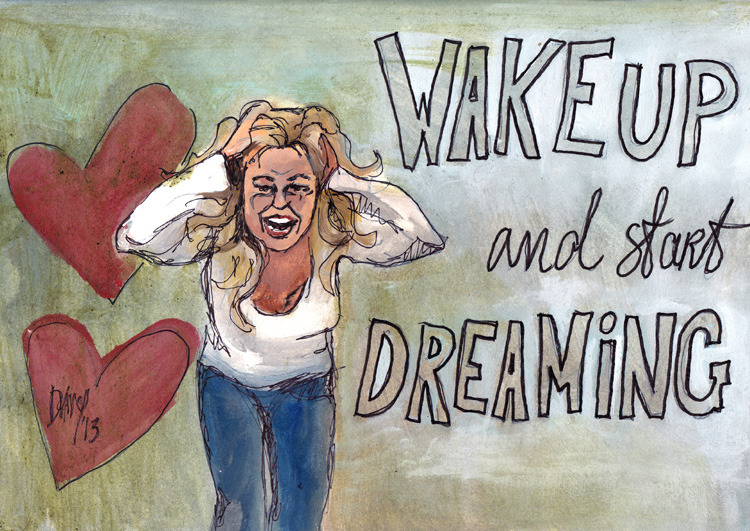 WAKE UP
and start
DREAMiNG
'13